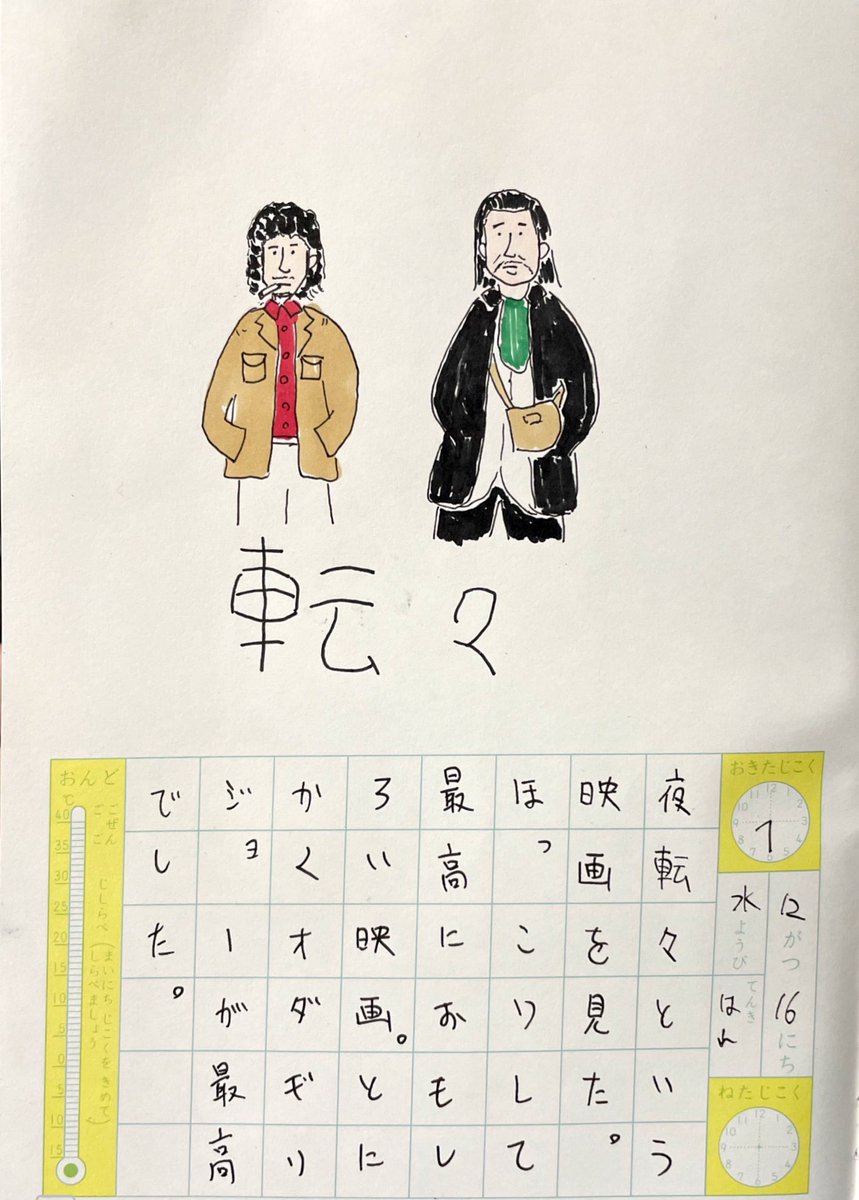 転々
おきたじこく
12がつ16にち
水ようび
てんき
はれ
ねたじこく
夜転々という
映画を見た。
ほっこりして
最高におもし
ろい映画。とに
かくオダギリ
ジョーが最高
でした。
おんど
℃
ごぜん
ごご
じしらべ
(まいにちじこくをきめて
しらべましょう)
40
35
30
25
20
15
10
5
0
5
10
15